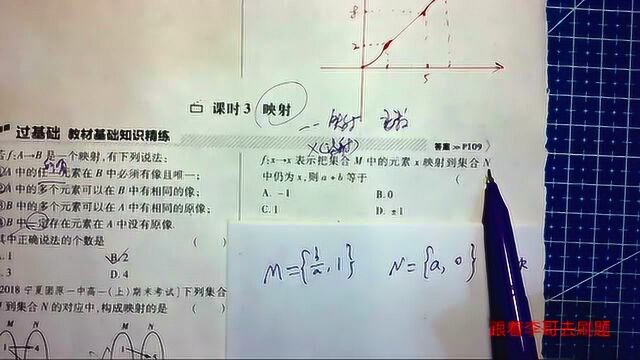 8
2
5
课时3 映射
过基础 教材基础知识精练
答案 ≫P109
若f:A→B是一个映射,有下列说法:
A中的任 元素在B中必须有像且唯一;
A中的多个元素可以在B中有相同的像;
B中的多个元素可以在A中有相同的原像;
B中一定存在元素在A中没有原像.
其中正确说法的个数是 ( )
1 B.2
3 D.4
2018 宁夏固原一中高一(上)期末考试]下列集合
到集合N的对应中,构成映射的是 ( )
M N M N
f:x→x表示把集合M中的元素x映射到集合N
中仍为x,则a+b等于 ( )
A. -1 B.0
C.1 D. ±1
M={b/a, 1} N={a, 0}
跟着李哥去刷题